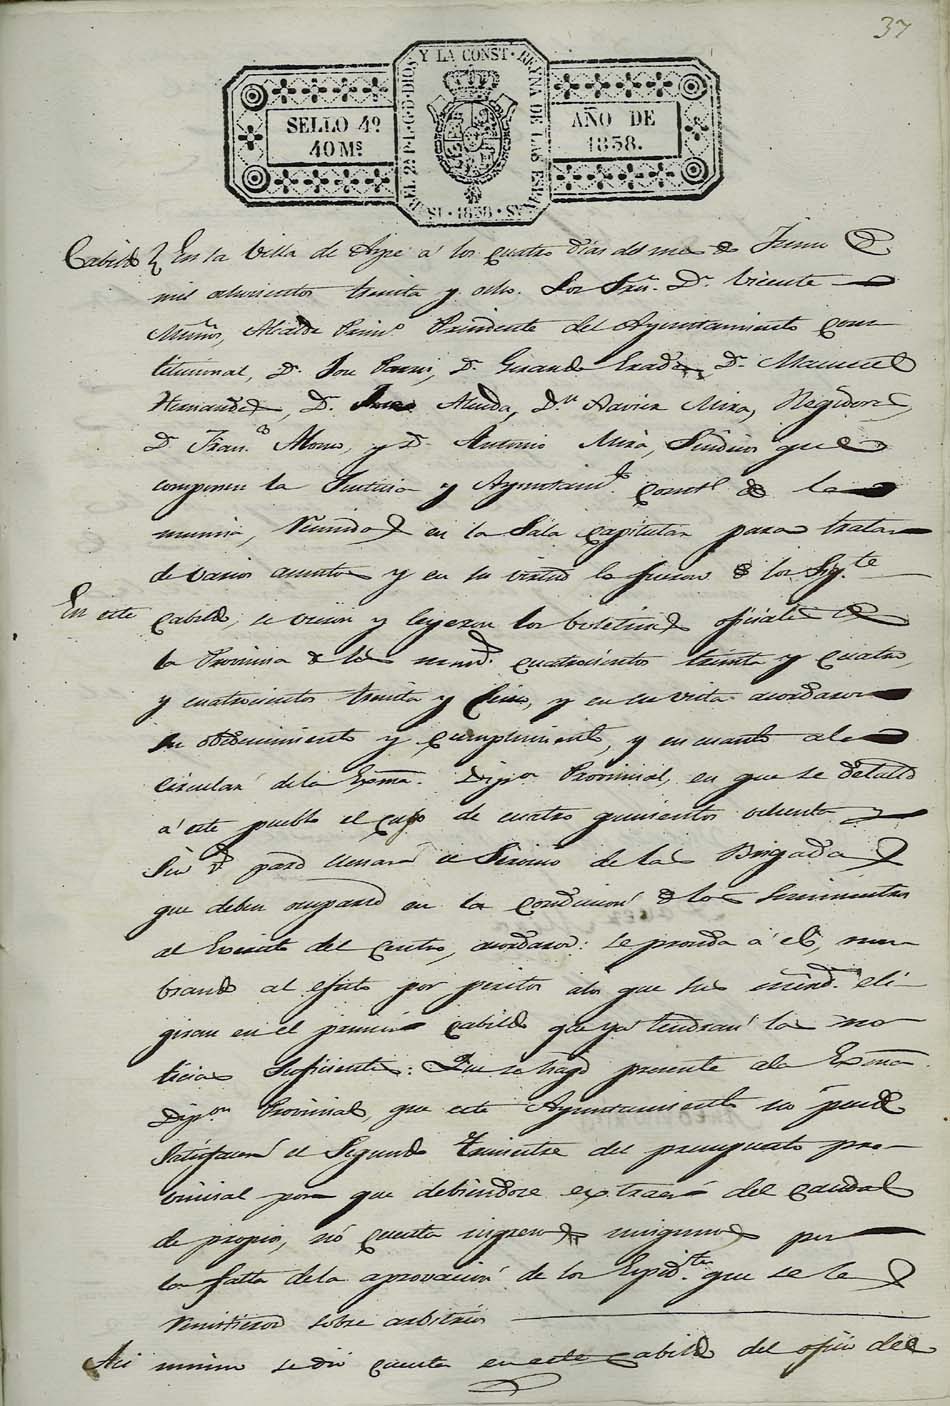 37
Y LA CONST. REYNA DE LAS ESPAÑAS
SELLO 4º
40 Ms
AÑO DE
1838.
Cabildo En la Villa de Aspe á los quatro dias del mes de Junio de
mil ochocientos treinta y ocho. Los Sres. Dn. Vicente
Muñoz, Alcalde Primº Presidente del Ayuntamiento Cons-
titucional, Dn. Jose Dn. Gerardo Dn. Manuel
Hernandez, Dn. Almda, Dn. Xavier Mira, Regidores,
Dn. Franco. Alonso, y Dn. Antonio Mira, Sindicos que
componen la Justicia y Ayuntamto. Constl. de la
misma, reunidos en la Sala Capitular para tratar
de varios asuntos y en su virtud lo fueron de los Sigtes
En este Cabildo, se vieron y leyeron los boletines oficiales de
la Provincia de los numos. cuatrocientos treinta y cuatro,
y cuatrocientos treinta y cinco, y en su vista acordaron
su obedecimiento y cumplimiento, y en cuanto a la
circular de la Exma. Dipon. Provincial, en que se detalla
á este pueblo el cupo de cuatro quinientos ochenta y
seis rs para llenar el Servicio de las Brigadas
que deben ocuparse en la conduccion de los suministros
al Exercito del Centro, acordaron: se proceda á ello, nom-
brando al efecto por peritos a los que sus mercds. eli-
giran en el primer cabildo que ya tendran las no-
ticias suficientes: Que se haga presente a la Exma
Dipon. Provincial, que este Ayuntamiento no puede
satisfacer el Segundo trimestre del presupuesto pro-
vincial por que debiendose extraer del caudal
de propios, no cuenta ingresos ningunos por
la falta de la aprovacion de los Expedtes. que se le
remitieron sobre arbitrios
Asi mismo se dio cuenta en este cabildo del oficio del